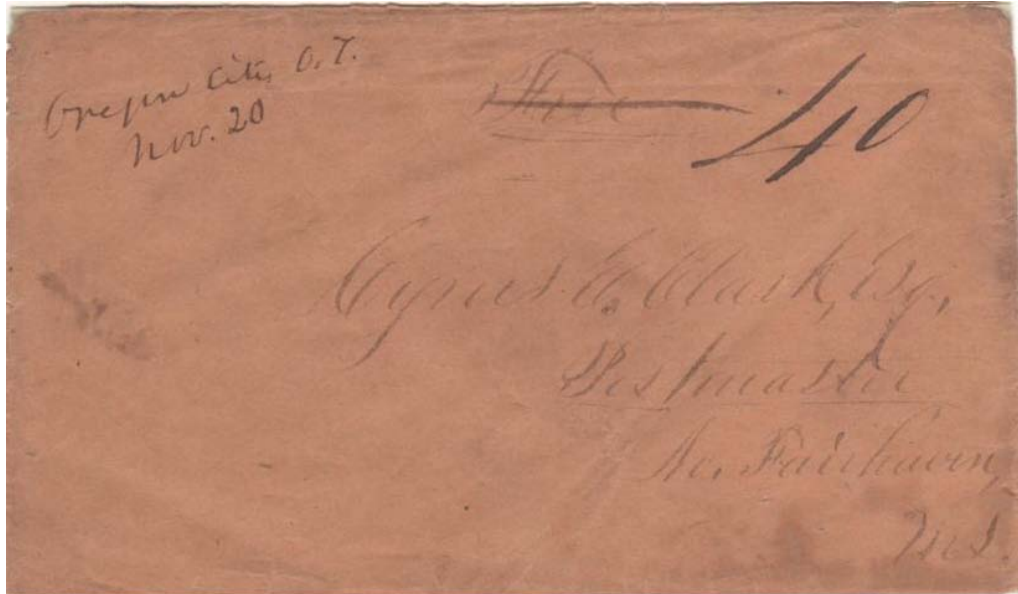 Oregon City, O.T.
Nov. 20
Free
40
Cyrus E. Clark, Esq.,
Postmaster
No. Fairhaven,
Ms.